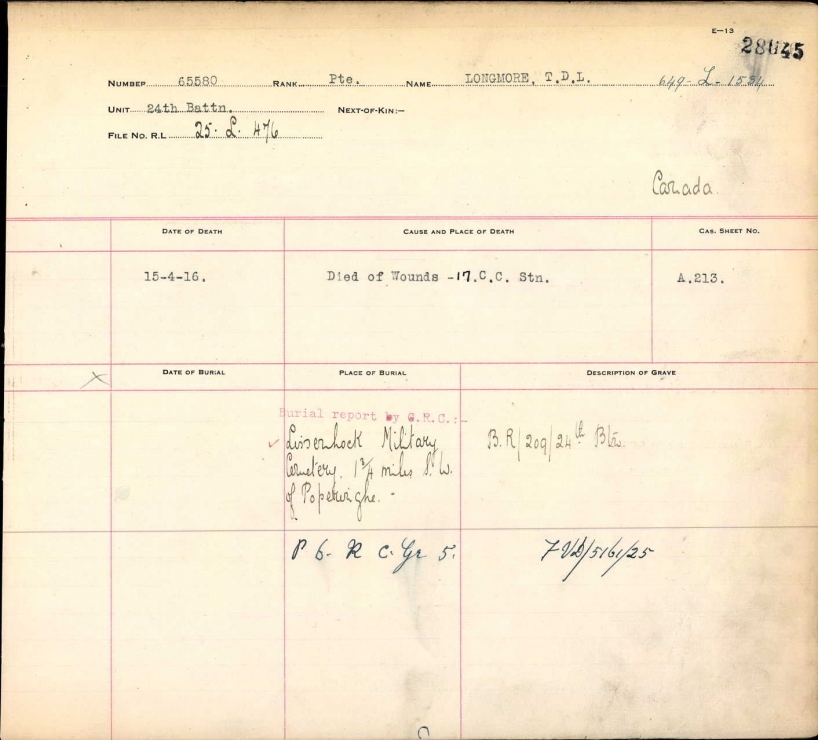 E—13
28645
NUMBER 65580 RANK Pte. NAME LONGMORE, T.D.L. 649-L-1534
UNIT 24th Battn. NEXT-OF-KIN:—
FILE NO. R.L 25. L. 476
Canada
DATE OF DEATH CAUSE AND PLACE OF DEATH CAS. SHEET NO.
15-4-16. Died of Wounds -17.C.C. Stn. A.213.
DATE OF BURIAL PLACE OF BURIAL DESCRIPTION OF GRAVE
Burial report by G.R.C.:-
Lissenhock Military B.R/209/24th Btn.
Cemetery. 1 3/4 miles S.W.
of Poperinghe. -
P 6. R C. Gr 5.